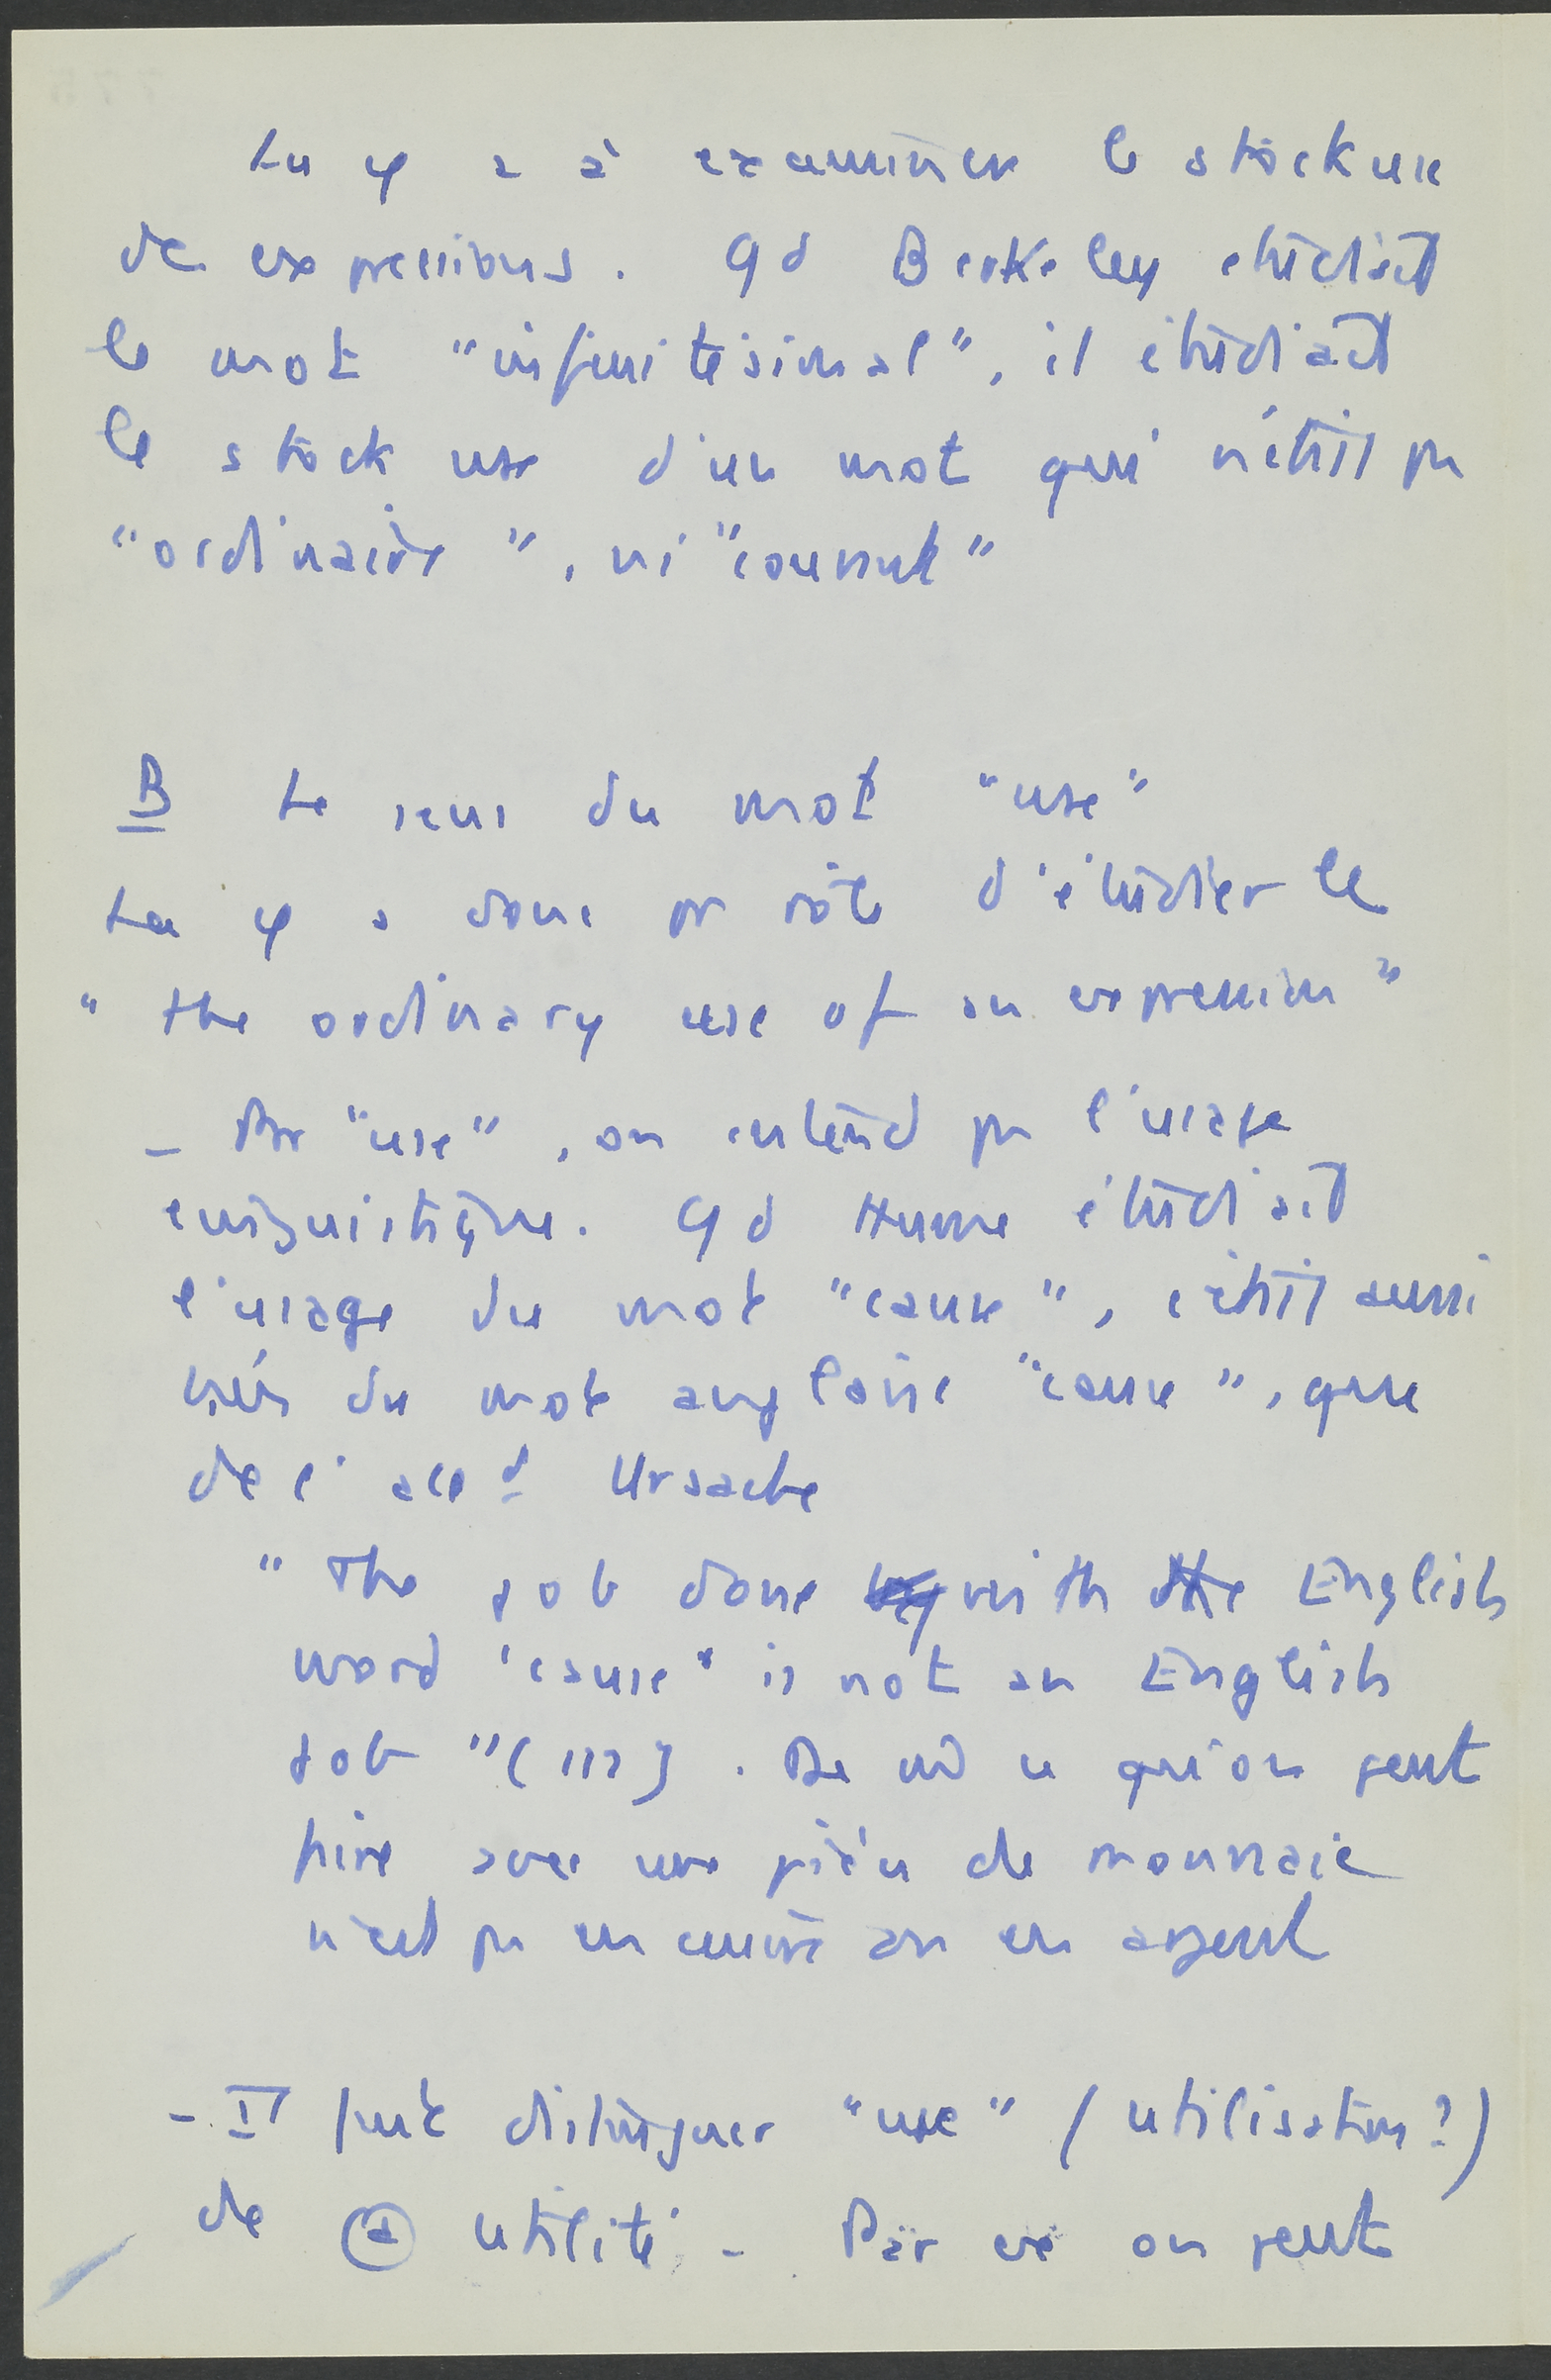 La φ a à examiner le stock use
de expressions. Qd Berkeley étudiait
le mot "infinitésimal", il étudiait
le stock use d'un mot qui n'était pas
"ordinaire", ni "courant"
B Le sens du mot "use"
La φ a donc pr rôle d'étudier le
"the ordinary use of an expression"
- Par "use", on entend pas l'usage
linguistique. Qd Hume étudiait
l'usage du mot "cause", c'était aussi
bien du mot anglais "cause", que
de l' all d Ursache
"The job done with the English
word 'cause' is not an English
job" ( ). De m ce qu'on peut
faire avec une pièce de monnaie
n'est pas en cuivre ou en argent
- Il faut distinguer "use" (utilisation?)
de ⓐ utilité. - Par ex on peut